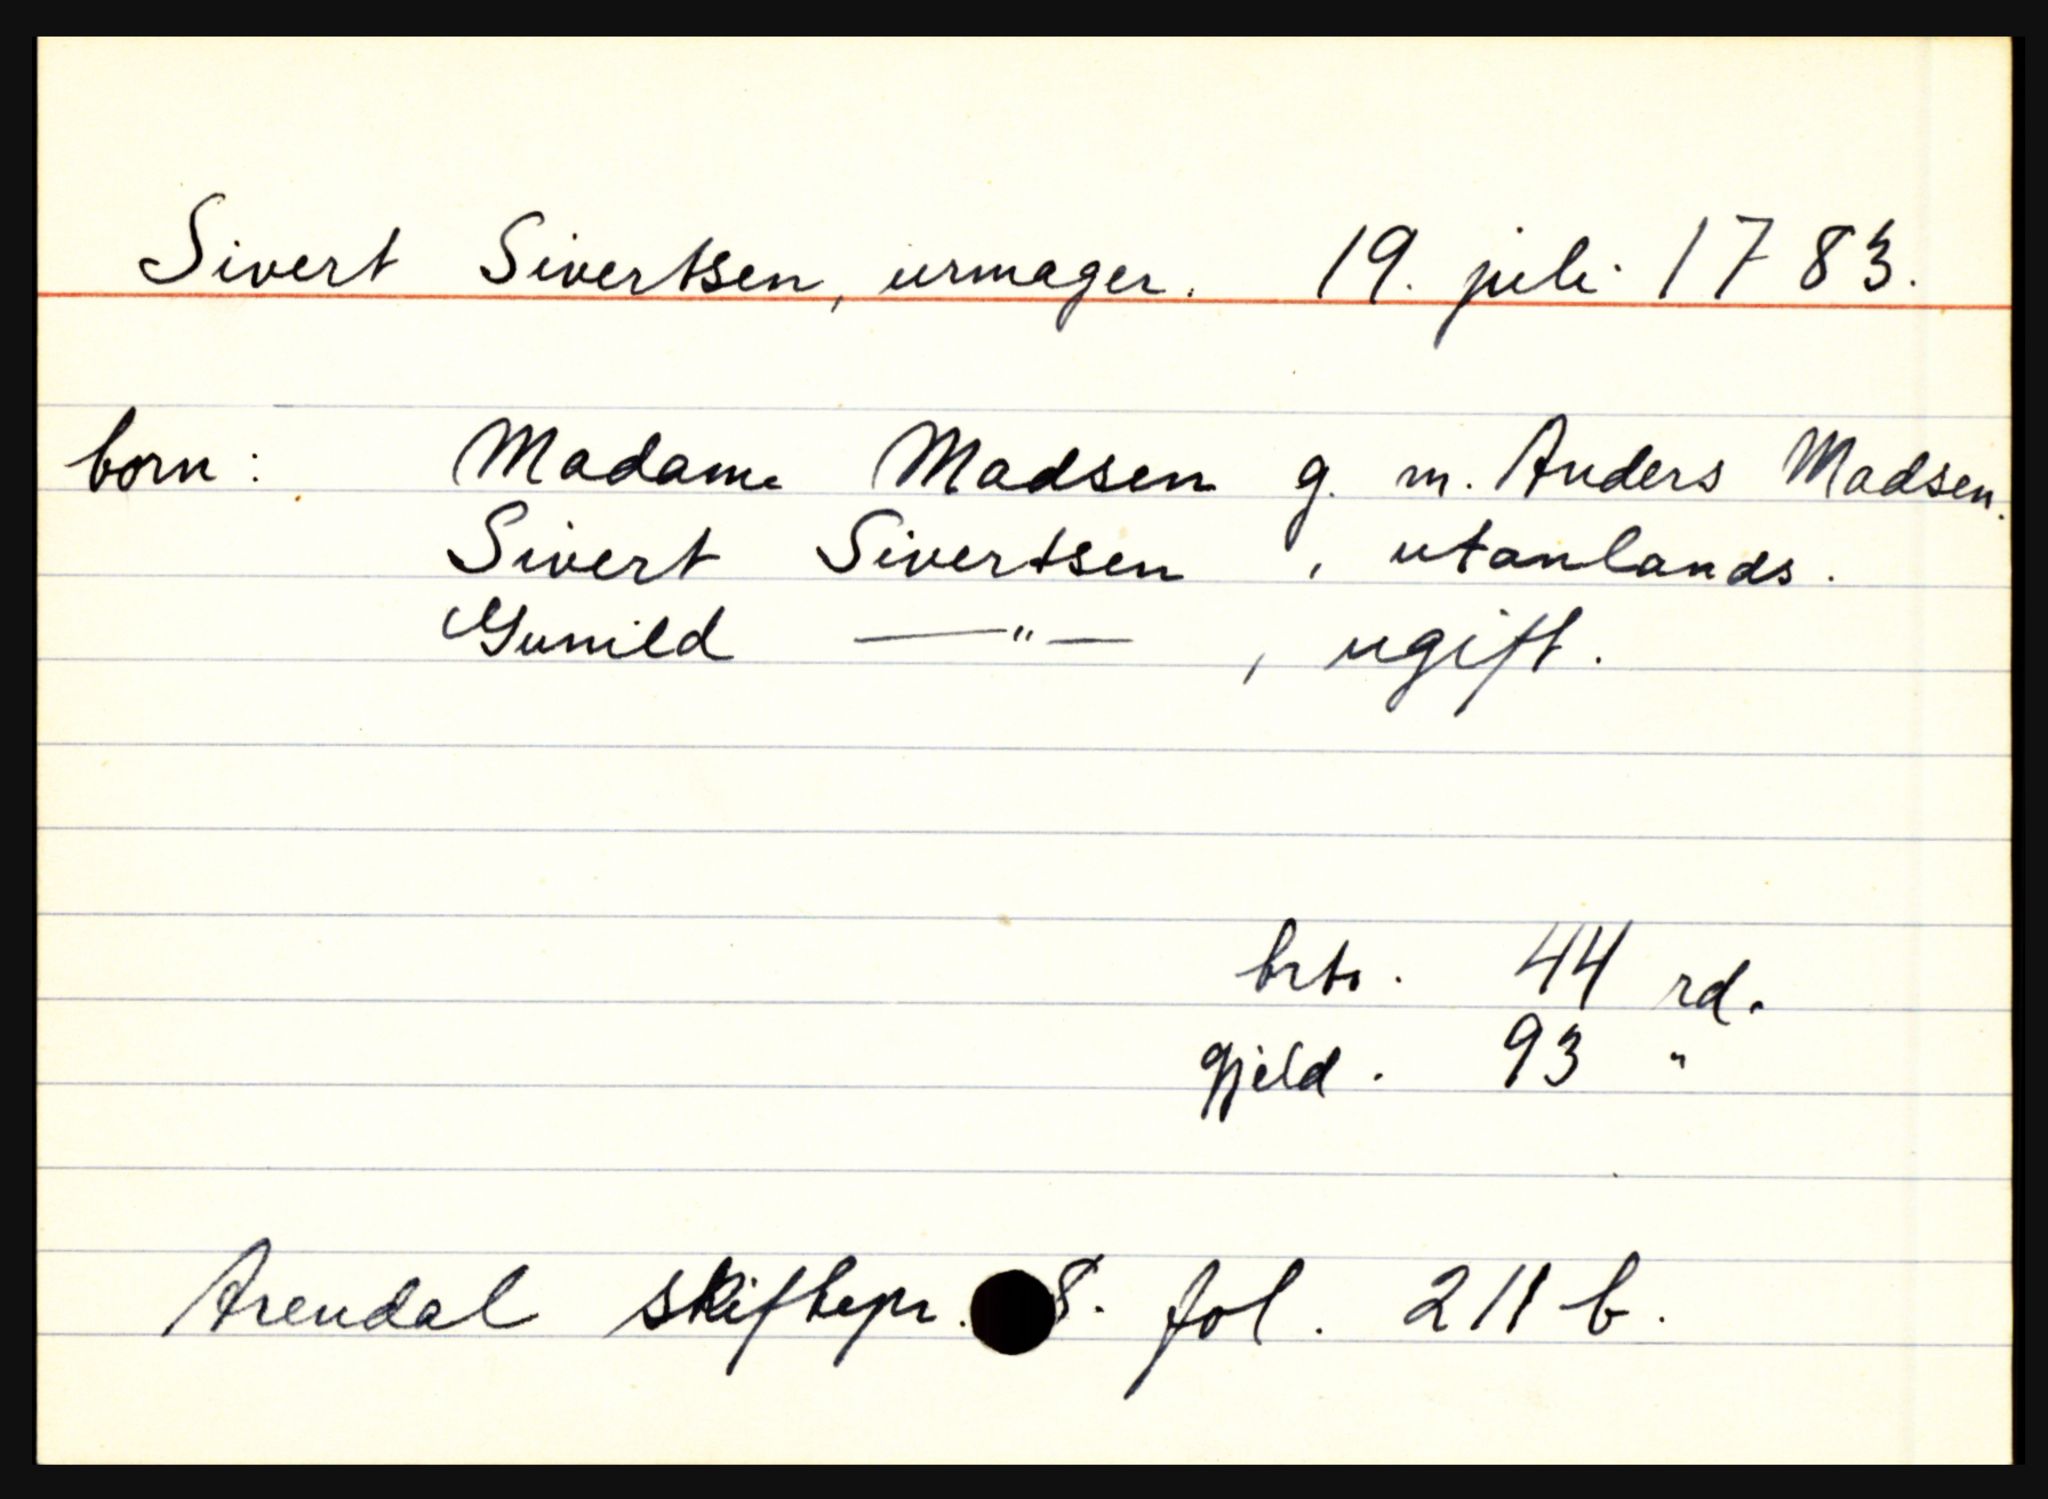 Sivert Sivertsen, urmager. 19. juli 1783.
born: Madame Madsen g. m. Anders Madsen.
Sivert Sivertsen, utanlands.
Gunild —"—, ugift.
brto. 44 rd.
gjeld. 93 "
Arendal skiftepr. 8. fol. 211 b.